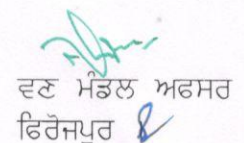 ਵਣ ਮੰਡਲ ਅਫਸਰ
ਫਿਰੋਜਪੁਰ